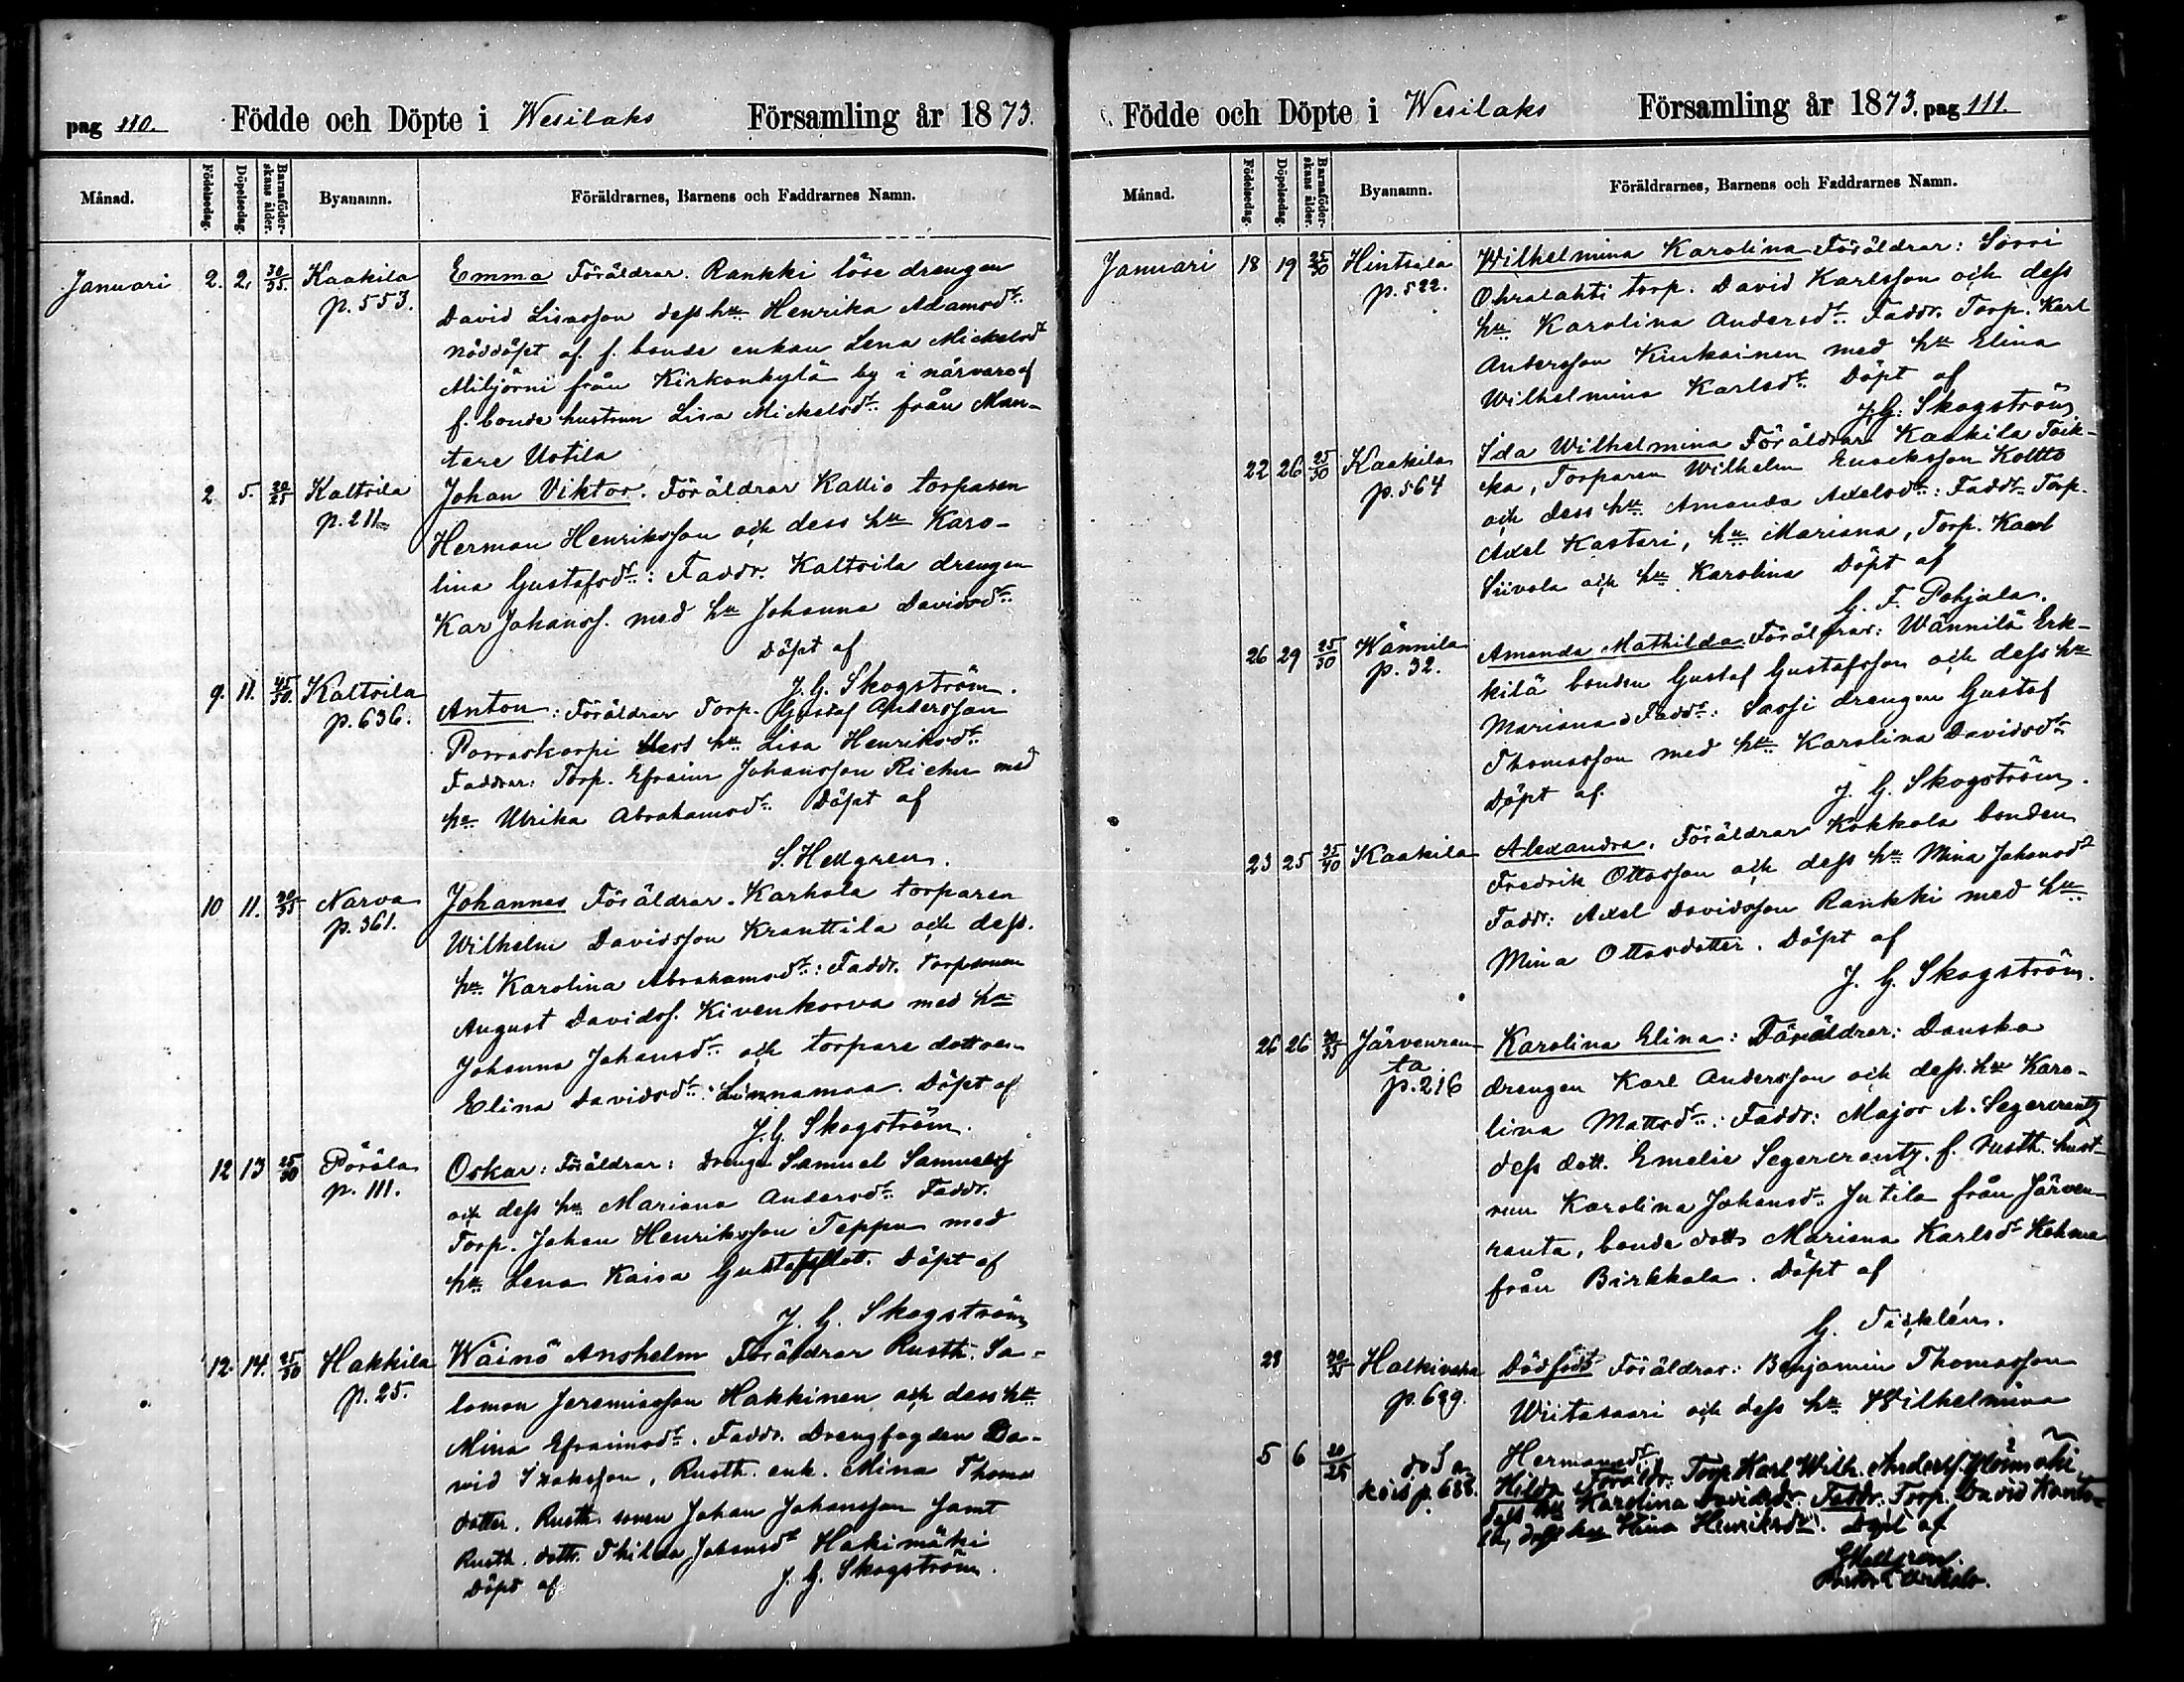 pag 110. Födde och Döpte i Wesilaks Församling år 1873.
Månad. Födelsedag. Döpelsedag. Barnaföderskans ålder. Byanamn. Föräldrarnes, Barnens och Faddrarnes Namn.
Januari 2. 2. 30/35. Kaakila Emma Föräldrar. Rankki löse drengen
p. 553. David Lisasson dess hu Henrika Adamsdr
nöddöpt af f. bonde enkan Lena Mickelsdr
Miljörni från Kirkonkylä by i närvaro af
f. bonde hustrun Lisa Mickelsdr från Man-
tere Uotila
2. 5. 20/25 Kaltsila Johan Viktor. Föräldrar Kallio torparen
p. 211 Herman Henriksson och dess hu Karo-
lina Gustafsdr: Faddr. Kaltsila drengen
Kar Johanss. med hu Johanna Davidsdr
Döpt af
J. G. Skogström.
9. 11. 45/50. Kaltsila Anton: Föräldrar Torp. Gustaf Andersson
p. 636. Porraskorpi dess hu Lisa Henriksdr
Faddrar: Torp. Efraim Johansson Riehu med
hu Ulrika Abrahamsdr. Döpt af
S. Hellgren.
10 11. 30/35 Narva Johannes Föräldrar. Karhola torparen
p. 361. Wilhelm Davidsson Kranttila och dess
hu Karolina Abrahamsdr: Faddr. Torpsonen
August Davidss. Kivenkorva med hu
Johanna Johansdr och torpare dottern
Elina Davidsdr Linnamaa. Döpt af
J. G. Skogström.
12 13 25/30 Pöröla Oskar: Föräldrar: Dreng Samuel Samuelss
p. 111. och dess hu Mariana Andersdr Faddr.
Torp. Johan Henriksson Teppu med
hu Lena Kaisa Gustafsdott. Döpt af
J. G. Skogström
12. 14. 25/30 Hakkila Wäinö Anshelm Föräldrar Rusth. Sa-
p. 25. lomon Jeremiasson Hakkinen och dess hu
Mina Efraimsdr. Faddr. Drengfogden Da-
vid Isaksson, Rusth. enk. Mina Thomas
dotter. Rusth. sonen Johan Johansson samt
Rusth. dottr. Thilda Johansdr Hakimäki
Döpt af J. G. Skogström.
Födde och Döpte i Wesilaks Församling år 1873. pag 111.
Månad. Födelsedag. Döpelsedag. Barnaföderskans ålder. Byanamn. Föräldrarnes, Barnens och Faddrarnes Namn.
Januari 18 19 25/30 Hintsala Wilhelmina Karolina Föräldrar: Sorri
p. 522. Ohralahti torp. David Karlsson och dess
hu Karolina Andersdr. Faddr. Torp. Karl
Andersson Kiukainen med hu Elina
Wilhelmina Karlsdr. Döpt af
J. G. Skogström
22 26 25/30 Kaakila Ida Wilhelmina Föräldrar Kaakila Toik-
p. 564 ka, Torparen Wilhelm Enocksson Koltto
och dess hu Amanda Axelsdr: Faddr. Torp.
Axel Kasteri, hu Mariana, Torp. Karl
Siivola och hu Karolina Döpt af
G. F. Pohjala.
26 29 25/30 Wännilä Amanda Mathilda Föräldrar: Wännilä Erk-
p. 32. kilä bonden Gustaf Gustafsson och dess hu
Mariana Faddr: Sassi drengen Gustaf
Thomasson med hu Karolina Davidsdr
Döpt af J. G. Skogström.
23 25 35/40 Kaakila Alexandra. Föräldrar Kokkola bonden
Fredrik Ottosson och dess hu Mina Johansdr
Faddr: Axel Davidsson Rankki med hu
Mina Ottosdotter. Döpt af
J. G. Skogström.
26 26 30/35 Järvenran- Karolina Elina: Föräldrar: Danska
ta p. 216 drengen Karl Andersson och dess hu Karo-
lina Mattsdr: Faddr: Major A. Segercrantz
dess dott. Emelie Segercrantz. f. Rusth. hust-
run Karolina Johansdr Jutila från Järven-
ranta, bonde dottr Mariana Karlsdr Kehma
från Birkkala. Döpt af
G. Ticklén.
28 30/35 Halkivaha Dödfödt Föräldrar: Benjamin Thomasson
p. 699. Wiitasaari och dess hu Wilhelmina
Hermansdr
5 6 20/25 Hilda Föräldr. Torp Karl Wilh. Anderss
p. 688. dess hu Karolina Davidsdr. Faddr: Torp. David
dess hu Hina Henriksdr. Döpt af
Hellgren.